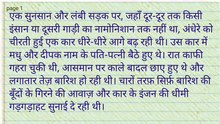 page 1
एक सुनसान और लंबी सड़क पर, जहाँ दूर-दूर तक किसी
इंसान या दूसरी गाड़ी का नामोनिशान तक नहीं था, अंधेरे को
चीरती हुई एक कार धीरे-धीरे आगे बढ़ रही थी। उस कार में
मधु और दीपक नाम के पति-पत्नी बैठे हुए थे। रात काफी
गहरा चुकी थी, आसमान पर काले बादल छाए हुए थे और
लगातार तेज़ बारिश हो रही थी। चारों तरफ़ सिर्फ़ बारिश की
बूँदों के गिरने की आवाज़ और कार के इंजन की धीमी
गड़गड़ाहट सुनाई दे रही थी।